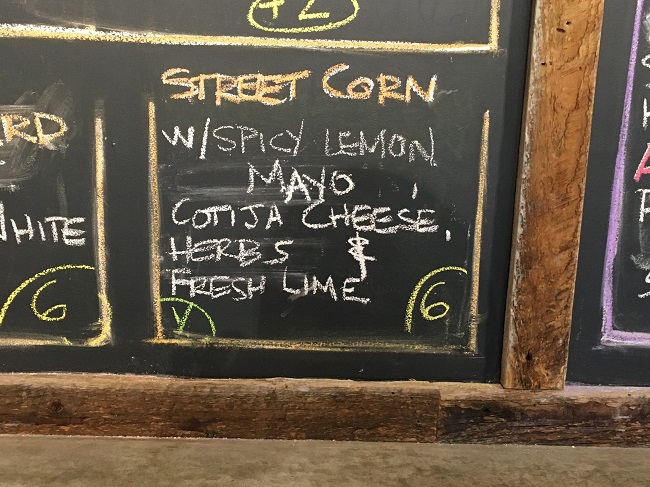 +2
STREET CORN
W/SPICY LEMON
MAYO,
COTIJA CHEESE,
HERBS &
FRESH LIME
V
6
WHITE
6